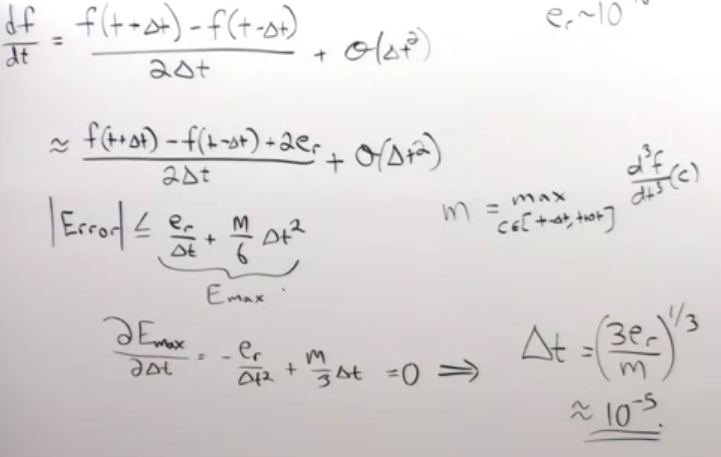 df/dt = (f(t+Δt) - f(t-Δt))/(2Δt) + O(Δt²)
e_r ~ 10
≈ (f(t+Δt) - f(t-Δt) + 2e_r)/(2Δt) + O(Δt²)
|Error| ≤ e_r/Δt + M/6 Δt²
E_max
m = max_{c∈[t-Δt, t+Δt]} d³f/dt³ (c)
∂E_max/∂Δt = -e_r/Δt² + m/3 Δt = 0 ⟹
Δt = (3e_r/m)^{1/3}
≈ 10^{-5}.